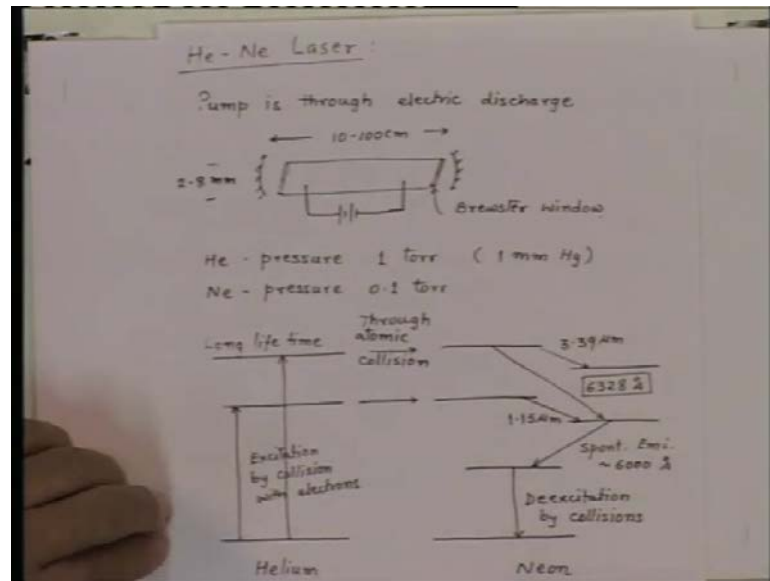 He - Ne Laser :
Pump is through electric discharge
10-100cm
2-8 mm
Brewster window
He - pressure 1 torr ( 1 mm Hg)
Ne - pressure 0.1 torr
Long life time
Through
atomic
collision
3.39 μm
6328 Å
1.15 μm
Spont. Emi.
~6000 Å
Excitation
by collision
with electrons
Deexcitation
by collisions
Helium
Neon